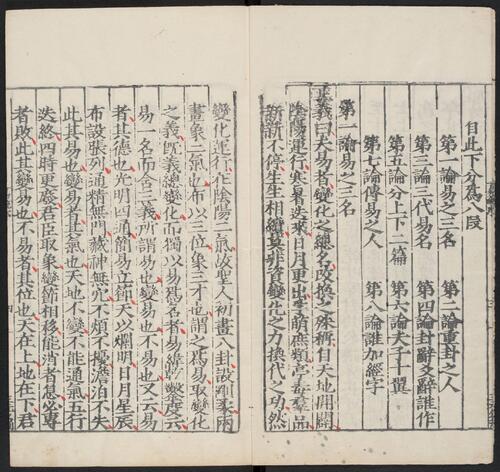 自此下分為八段
第一論易之三名　第二論重卦之人
第三論三代易名　第四論卦辭爻辭誰作
第五論分上下二篇　第六論夫子十翼
第七論傳易之人　第八論誰加經字
第一論易之三名
正義曰夫易者變化之總名改換之殊稱自天地開闢
陰陽運行寒暑迭來日月更出孚萌庶類亭毒群品
新新不停生生相續莫非資變化之力換代之功然
變化運行在陰陽二氣故聖人初畫八卦設剛柔兩
畫象二氣也布以三位象三才也謂之為易取變化
之義既義總變化而獨以易為名者易緯乾鑿度云
易一名而含三義所謂易也變易也不易也又云易
者其德也光明四通簡易立節天以爛明日月星辰
布設張列通精無門藏神無穴不煩不擾澹泊不失
此其易也變易者其氣也天地不變不能通氣五行
迭終四時更廢君臣取象變節相移能消者息必專
者敗此其變易也不易者其位也天在上地在下君